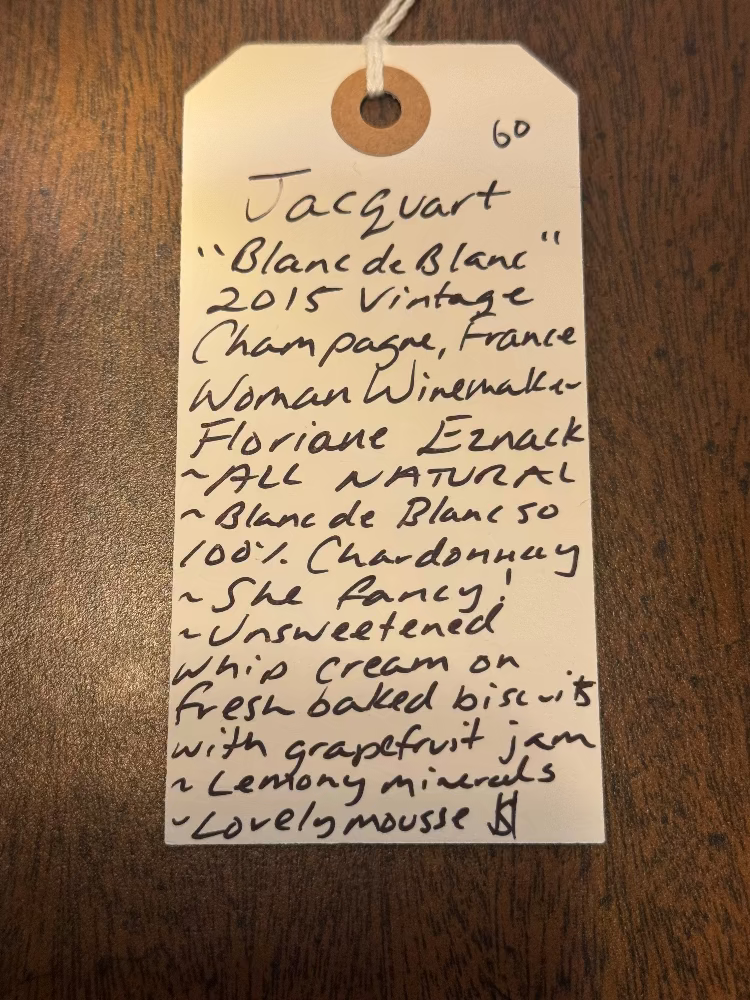 60
Jacquart
"Blanc de Blanc"
2015 Vintage
Champagne, France
Woman Winemaker
Floriane Eznack
~ALL NATURAL
~Blanc de Blanc so
100% Chardonnay
~She fancy!
~Unsweetened
whip cream on
fresh baked biscuits
with grapefruit jam
~Lemony minerals
~Lovely mousse